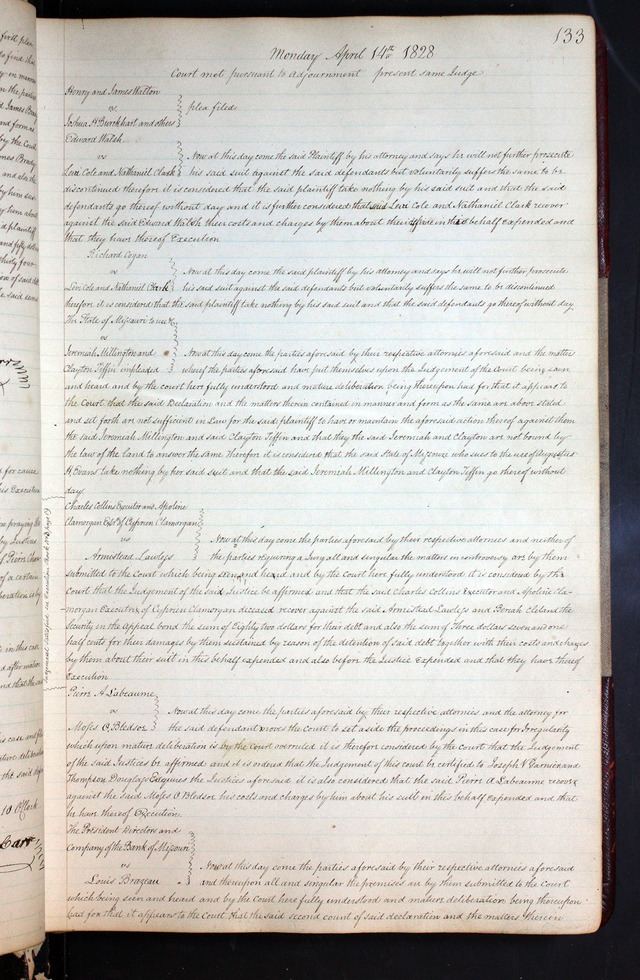 133
Monday April 14th 1828
Court met pursuant to adjournment present same Judge
Henry and James Walton
vs plea filed
Joshua H Burckhart and others
Edward Walsh
vs Now at this day come the said Plaintiff by his attorney and says he will not further prosecute
Levi Cole and Nathaniel Clark his said suit against the said defendants but voluntarily suffers the same to be
discontinued therefore it is considered that the said plaintiff take nothing by his said suit and that the said
defendants go thereof without day and it is further considered that said Levi Cole and Nathaniel Clark recover
against the said Edward Walsh their costs and charges by them about their defence in this behalf expended and
that they have thereof Execution
Richard Cogan
vs Now at this day come the said plaintiff by his attorney and says he will not further prosecute
Levi Cole and Nathaniel Clark his said suit against the defendants but voluntarily suffers the same to be discontinued
therefore it is considered that the said plaintiff take nothing by his said suit and that the said defendants go thereof without day
The State of Missouri to use &c
vs
Jeremiah Millington and Now at this day come the parties aforesaid by their respective attorneys aforesaid and the matters
Clayton Tiffin impleaded whereof the parties aforesaid have put themselves upon the Judgement of the Court being seen
and heard and by the court here fully understood and mature deliberation being thereupon had for that it appears to
the Court that the said Declaration and the matters therein contained in manner and form as the same are above stated
and set forth are not sufficient in Law for the said plaintiff to have or maintain the aforesaid action thereof against them
the said Jeremiah Millington and said Clayton Tiffin and that they the said Jeremiah and Clayton are not bound by
the law of the land to answer the same Therefore it is considered that the said State of Missouri who sues to the use of Augustus
H Evans take nothing by her said suit and that the said Jeremiah Millington and Clayton Tiffin go thereof without
day
Charles Collins Executor and Apoline
Clamorgan Extx of Cyprien Clamorgan
vs Now at this day come the parties aforesaid by their respective attorneys and neither of
Armistead Lawless the parties requiring a Jury all and singular the matters in controversy are by them
submitted to the Court which being seen and heard and by the court here fully understood it is considered by the
Court that the Judgement of the said Justice be affirmed and that the said Charles Collins Executor and Apoline Cla-
morgan Executrix of Cyprien Clamorgan deceased recover against the said Armistead Lawless and Borah Cleland the
Security in the appeal bond the sum of Eighty two dollars for their debt and also the sum of Three dollars seven and one
half cents for their damages by them sustained by reason of the detention of said debt together with their costs and charges
by them about their suit in this behalf expended and also before the Justice Expended and that they have thereof
Execution
Pierre A Labeaume
vs Now at this day come the parties aforesaid by their respective attornies and the attorney for
Moses O Bledsoe the said defendant moves the court to set aside the proceedings in this case for Irregularity
which upon mature deliberation is by the Court overruled it is therefore considered by the court that the Judgement
of the said Justices be affirmed and it is ordered that the Judgement of this court be certified to Joseph V Garnier and
Thompson Douglass Esquires the Justices aforesaid it is also considered that the said Pierre A Labeaume recover
against the said Moses O Bledsoe his costs and charges by him about his suit in this behalf Expended and that
he have thereof Execution
The President Directors and
Company of the Bank of Missouri
vs Now at this day come the parties aforesaid by their respective attorneys aforesaid
Louis Brazeau and thereupon all and singular the premises are by them submitted to the Court
which being seen and heard and by the Court here fully understood and mature deliberation being thereupon
had for that it appears to the Court that the said second count of said declaration and the matters therein